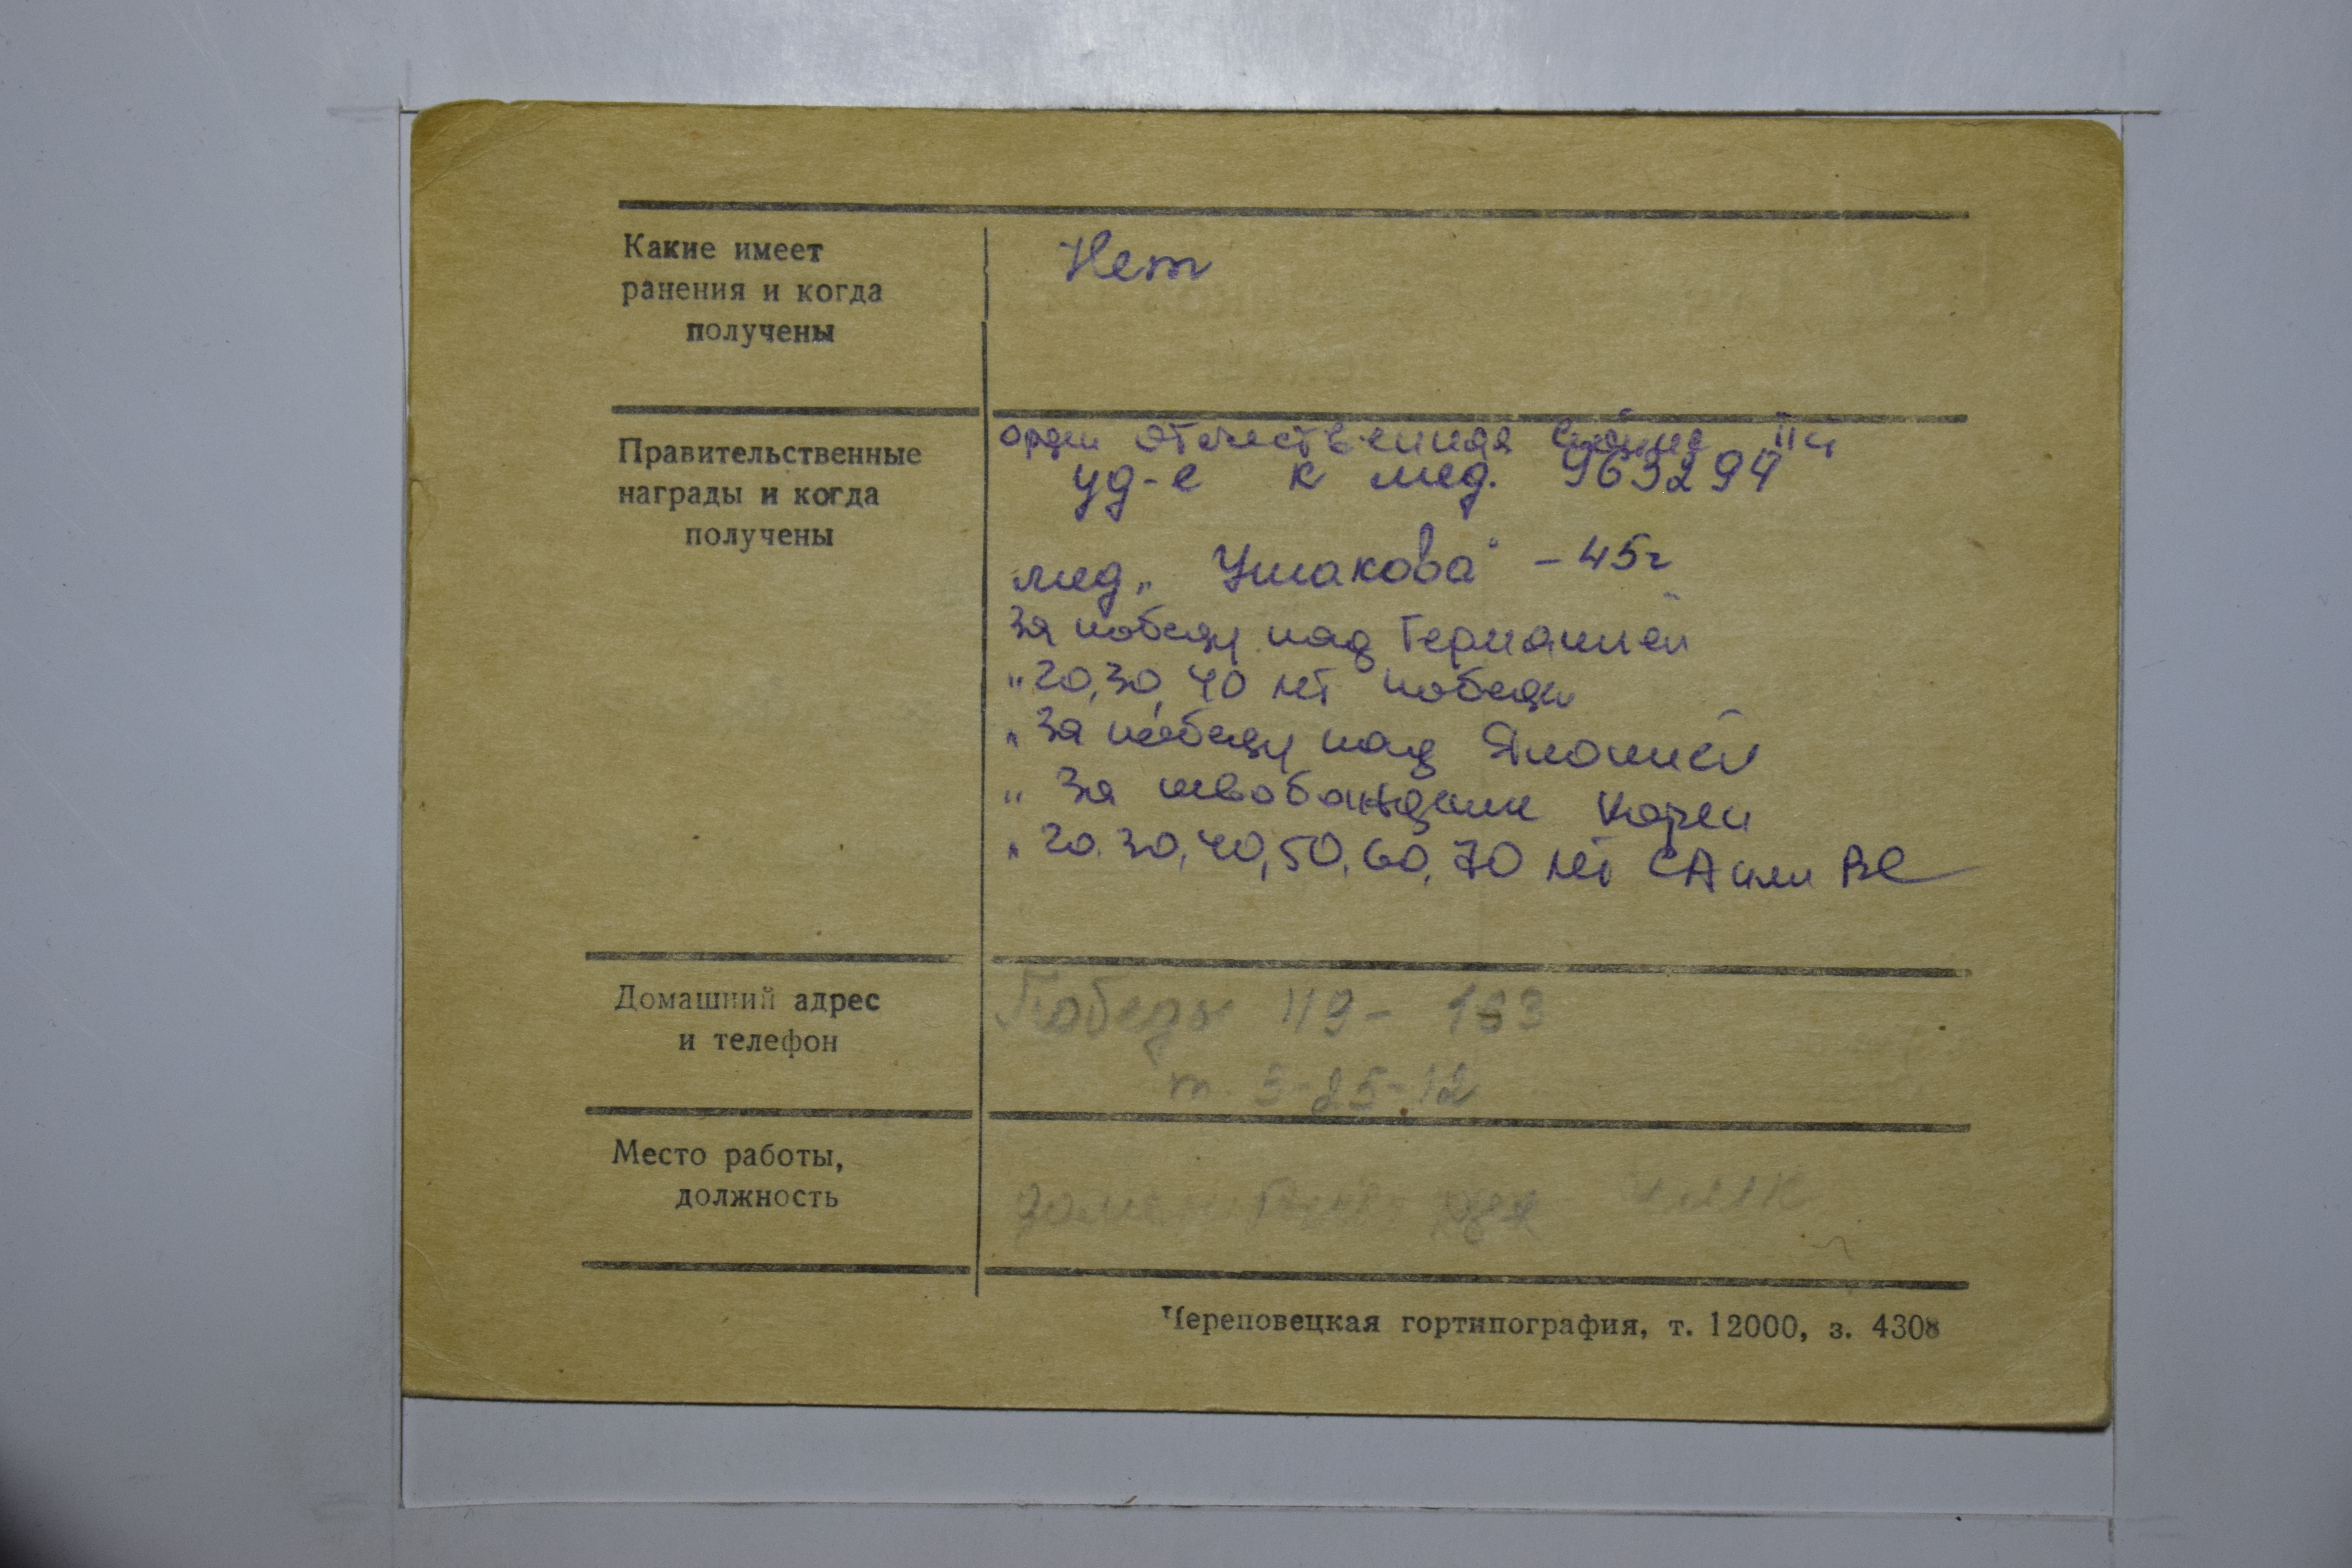 Какие имеет
ранения и когда
получены
Нет
Правительственные
награды и когда
получены
орден Отечественная война II ст
уд-е к мед. 963294
мед „Ушакова" – 45г
За победу над Германией
„20, 30, 40 лет победы
„За победу над Японией
„За освобождение Кореи
„20. 30, 40, 50, 60, 70 лет СА или ВС
Домашний адрес
и телефон
Победы 119 – 163
т. 3-25-12
Место работы,
должность
ЧМК
Череповецкая гортипография, т. 12000, з. 4308